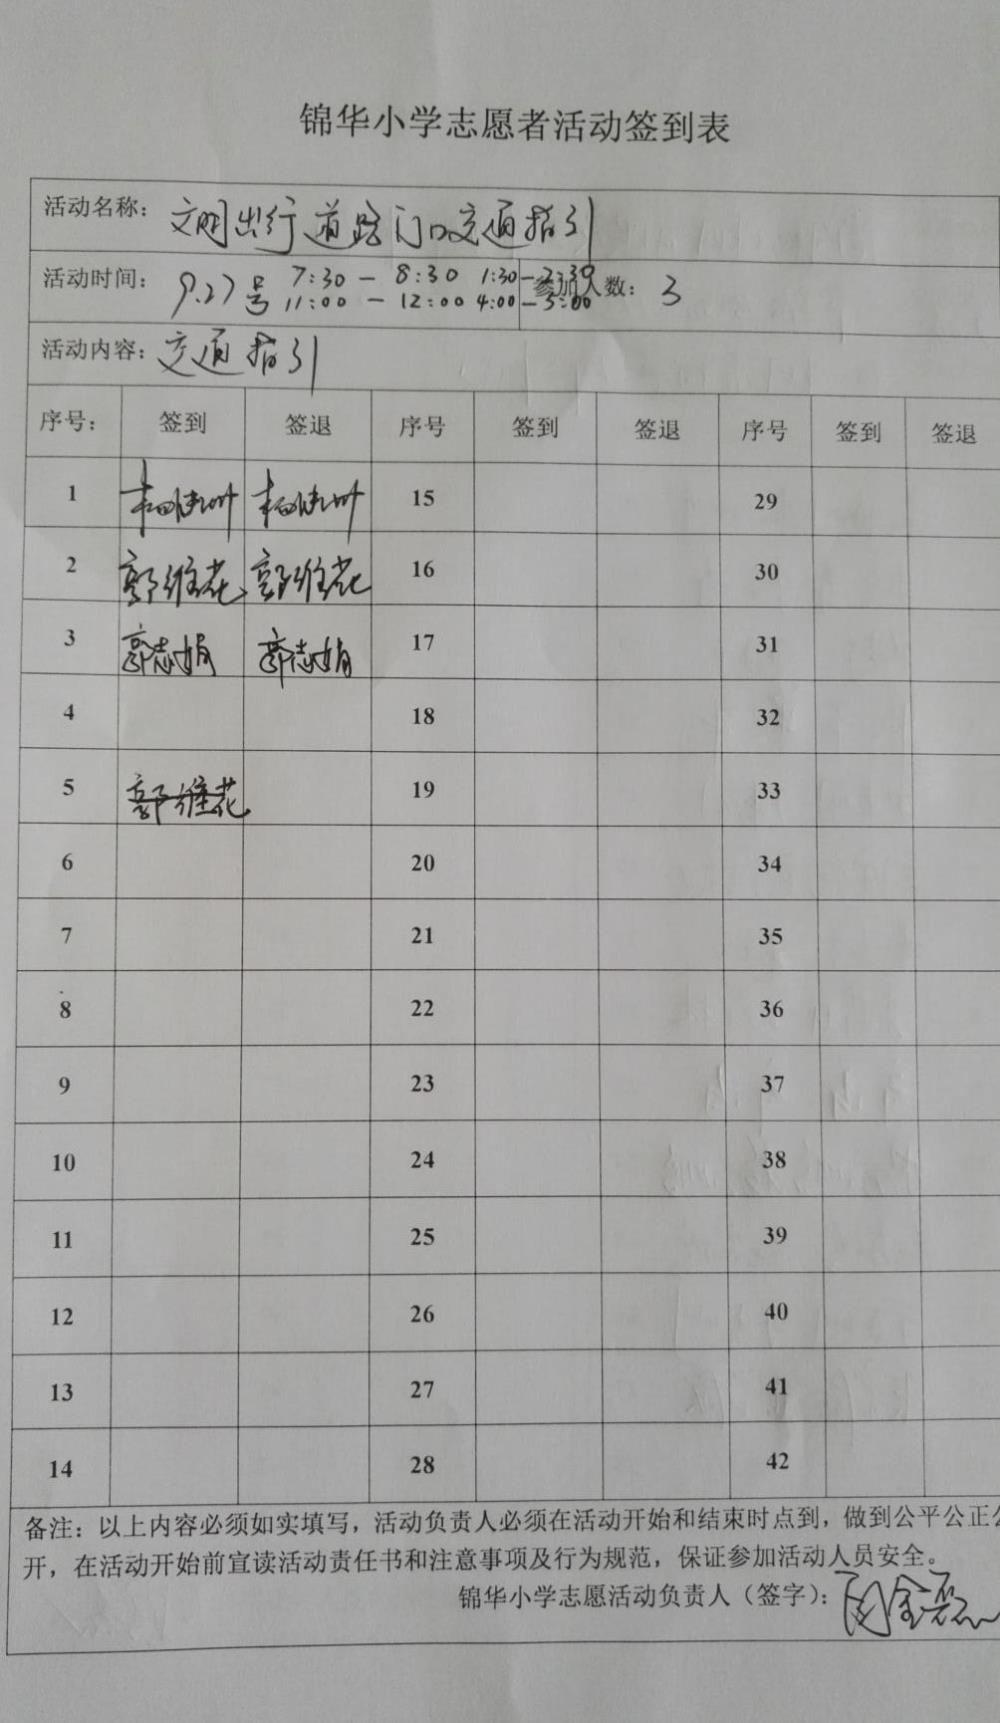 锦华小学志愿者活动签到表
活动名称：文明出行道路门口交通指引
活动时间：9.27号 7:30－8:30 1:30－2:30
11:00－12:00 4:00－5:00
参加人数：3
活动内容：交通指引
序号： 签到 签退 序号 签到 签退 序号 签到 签退
1 15 29
2 郭维花 郭维花 16 30
3 郭志娟 郭志娟 17 31
4 18 32
5 郭维花 19 33
6 20 34
7 21 35
8 22 36
9 23 37
10 24 38
11 25 39
12 26 40
13 27 41
14 28 42
备注：以上内容必须如实填写，活动负责人必须在活动开始和结束时点到，做到公平公正公
开，在活动开始前宣读活动责任书和注意事项及行为规范，保证参加活动人员安全。
锦华小学志愿活动负责人（签字）：